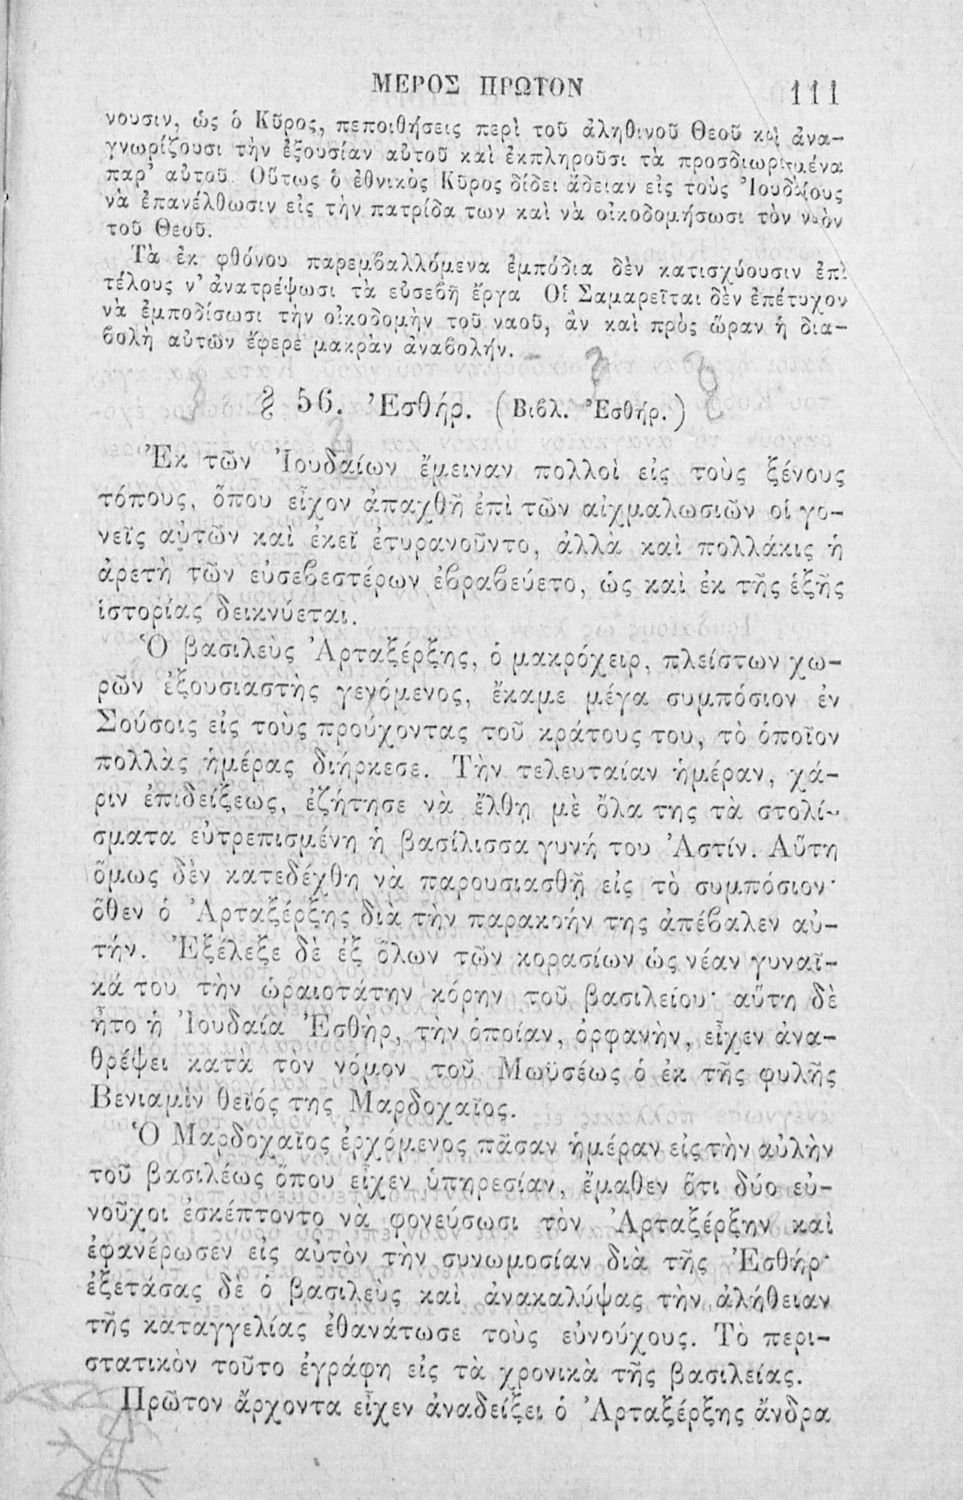 ΜΕΡΟΣ ΠΡΩΤΟΝ 111
νουσιν, ὡς ὁ Κῦρος, πεποιθήσεις περὶ τοῦ ἀληθινοῦ Θεοῦ καὶ ἀνα-
γνωρίζουσι τὴν ἐξουσίαν αὐτοῦ καὶ ἐκπληροῦσι τὰ προσδιωρισμένα
παρ' αὐτοῦ. Οὕτως ὁ ἐθνικὸς Κῦρος δίδει ἄδειαν εἰς τοὺς Ἰουδαίους
νὰ ἐπανέλθωσιν εἰς τὴν πατρίδα των καὶ νὰ οἰκοδομήσωσι τὸν ναὸν
τοῦ Θεοῦ.
Τὰ ἐκ φθόνου παρεμβαλλόμενα ἐμπόδια δὲν κατισχύουσιν ἐπὶ
τέλους ν' ἀνατρέψωσι τὰ εὐσεβῆ ἔργα Οἱ Σαμαρεῖται δὲν ἐπέτυχον
νὰ ἐμποδίσωσι τὴν οἰκοδομὴν τοῦ ναοῦ, ἂν καὶ πρὸς ὥραν ἡ δια-
βολὴ αὐτῶν ἔφερε μακρὰν ἀναβολήν.
§ 56. Ἐσθήρ. (Βιβλ. Ἐσθήρ.)
Ἐκ τῶν Ἰουδαίων ἔμειναν πολλοὶ εἰς τοὺς ξένους
τόπους, ὅπου εἶχον ἀπαχθῆ ἐπὶ τῶν αἰχμαλωσιῶν οἱ γο-
νεῖς αὐτῶν καὶ ἐκεῖ ἐτυραννοῦντο, ἀλλὰ καὶ πολλάκις ἡ
ἀρετὴ τῶν εὐσεβεστέρων ἐβραβεύετο, ὡς καὶ ἐκ τῆς ἑξῆς
ἱστορίας δεικνύεται.
Ὁ βασιλεὺς Ἀρταξέρξης, ὁ μακρόχειρ, πλείστων χω-
ρῶν ἐξουσιαστὴς γενόμενος, ἔκαμε μέγα συμπόσιον ἐν
Σούσοις εἰς τοὺς προύχοντας τοῦ κράτους του, τὸ ὁποῖον
πολλὰς ἡμέρας διήρκεσε. Τὴν τελευταίαν ἡμέραν, χά-
ριν ἐπιδείξεως, ἐζήτησε νὰ ἔλθῃ μὲ ὅλα της τὰ στολί-
σματα εὐτρεπισμένη ἡ βασίλισσα γυνή του Ἀστίν. Αὕτη
ὅμως δὲν κατεδέχθη νὰ παρουσιασθῇ εἰς τὸ συμπόσιον·
ὅθεν ὁ Ἀρταξέρξης διὰ τὴν παρακοήν της ἀπέβαλεν αὐ-
τήν. Ἐξέλεξε δὲ ἐξ ὅλων τῶν κορασίων ὡς νέαν γυναῖ-
κά του τὴν ὡραιοτάτην κόρην τοῦ βασιλείου· αὕτη δὲ
ἦτο ἡ Ἰουδαία Ἐσθήρ, τὴν ὁποίαν, ὀρφανήν, εἶχεν ἀνα-
θρέψει κατὰ τὸν νόμον τοῦ Μωϋσέως ὁ ἐκ τῆς φυλῆς
Βενιαμὶν θεῖός της Μαρδοχαῖος.
Ὁ Μαρδοχαῖος ἐρχόμενος πᾶσαν ἡμέραν εἰς τὴν αὐλὴν
τοῦ βασιλέως ὅπου εἶχεν ὑπηρεσίαν, ἔμαθεν ὅτι δύο εὐ-
νοῦχοι ἐσκέπτοντο νὰ φονεύσωσι τὸν Ἀρταξέρξην καὶ
ἐφανέρωσεν εἰς αὐτὸν τὴν συνωμοσίαν διὰ τῆς Ἐσθήρ·
ἐξετάσας δὲ ὁ βασιλεὺς καὶ ἀνακαλύψας τὴν ἀλήθειαν
τῆς καταγγελίας ἐθανάτωσε τοὺς εὐνούχους. Τὸ περι-
στατικὸν τοῦτο ἐγράφη εἰς τὰ χρονικὰ τῆς βασιλείας.
Πρῶτον ἄρχοντα εἶχεν ἀναδείξει ὁ Ἀρταξέρξης ἄνδρα